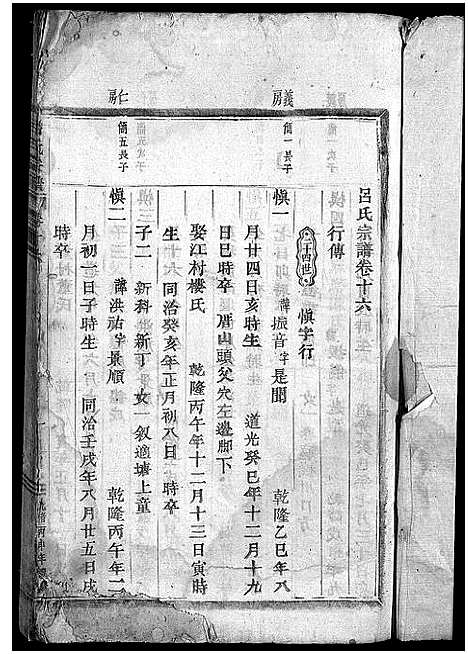 呂氏宗譜卷十六
行傳
二十四世 慎字行
義房 儞一長子
慎一 諱振音字是聞 乾隆乙巳年八
月廿四日亥時生 道光癸巳年十二月十九
日巳時卒 厝山頭父穴左邊脚下
娶江村樓氏 乾隆丙午年十二月十三日寅時
生 同治癸亥年正月初八日 時卒
子二 新科 新丁 女一 敘適塘上童
仁房 儞五長子
慎二 諱洪祐字景順 乾隆丙午年二
月初一日子時生 同治壬戌年八月廿五日戌
時卒